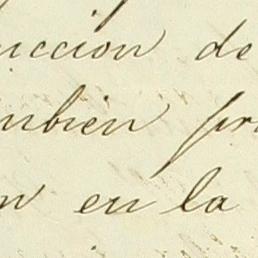 uccion de
mbien pr
n en la